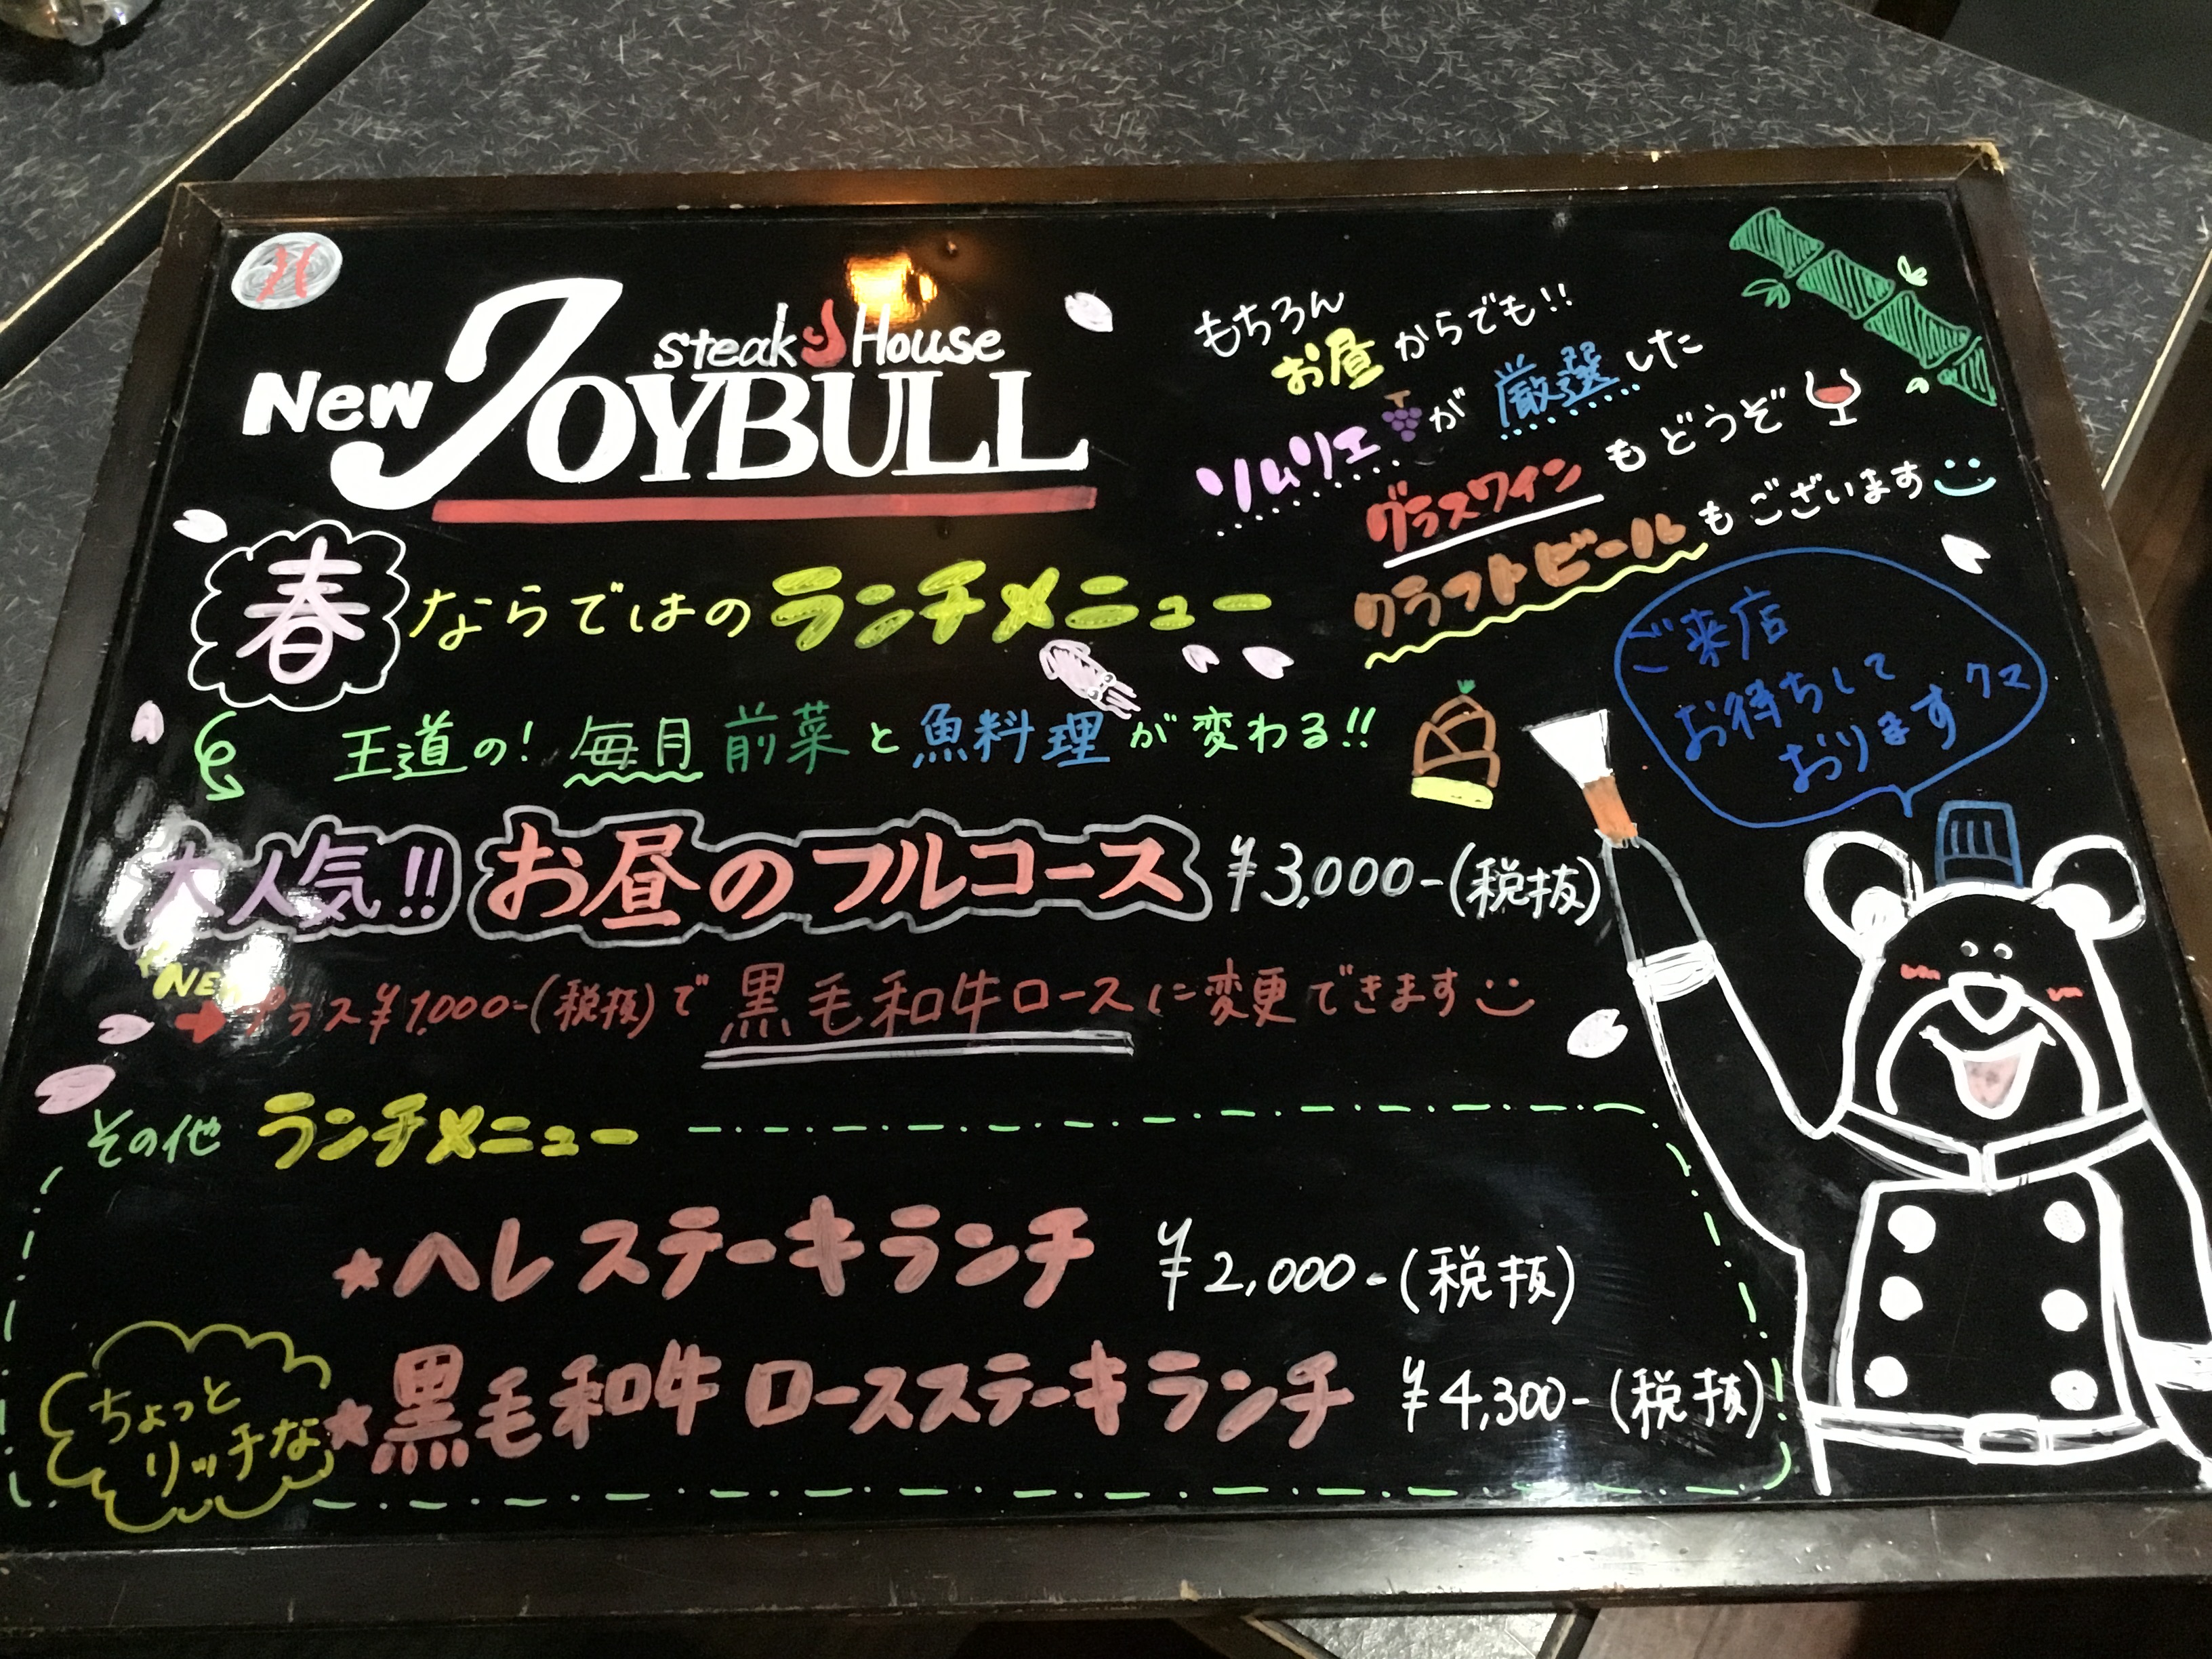 New JOYBULL
steak House
もちろん
お昼からでも!!
ソムリエが厳選した
グラスワインもどうぞ
クラフトビールもございます
春ならではのランチメニュー
ご来店
お待ちして
おりますクマ
王道の!毎月前菜と魚料理が変わる!!
大人気!!お昼のフルコース ¥3,000-(税抜)
NEW
プラス¥1,000-(税抜)で黒毛和牛ロースに変更できます
その他 ランチメニュー
★ヘレステーキランチ ¥2,000-(税抜)
ちょっと
リッチな
★黒毛和牛ロースステーキランチ ¥4,300-(税抜)